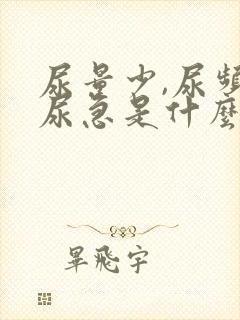 尿量少,尿頻
尿急是什麼
畢飛宇